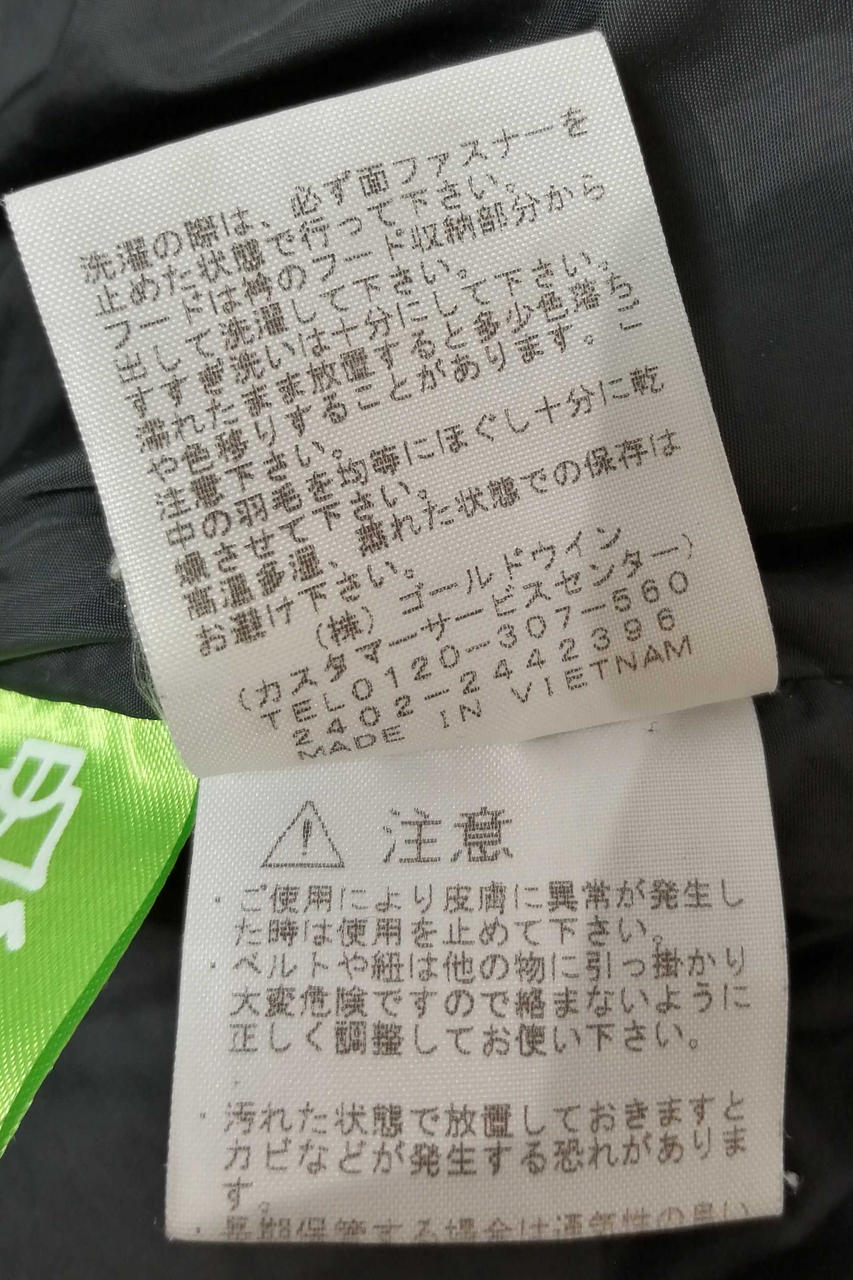 洗濯の際は、必ず面ファスナーを
止めた状態で行って下さい。
フードは衿のフード収納部分から
出して洗濯して下さい。
すすぎ洗いは十分にして下さい。
濡れたまま放置すると多少色落ち
や色移りすることがあります。ご
注意下さい。
中の羽毛を均等にほぐし十分に乾
燥させて下さい。
高温多湿、蒸れた状態での保存は
お避け下さい。
(株) ゴールドウイン
(カスタマーサービスセンター)
TEL0120-307-560
2402-2442396
MADE IN VIETNAM
注意
・ご使用により皮膚に異常が発生し
た時は使用を止めて下さい。
・ベルトや紐は他の物に引っ掛かり
大変危険ですので絡まないように
正しく調整してお使い下さい。
・汚れた状態で放置しておきますと
カビなどが発生する恐れがありま
す。
・長期保管する場合は通気性の良い